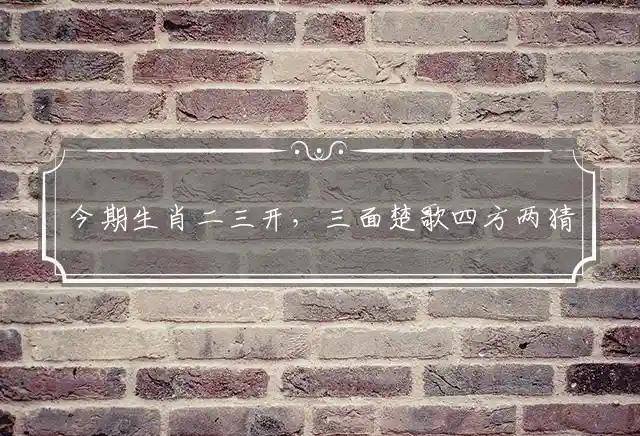 今期生肖二三开，三面楚歌四方两猜